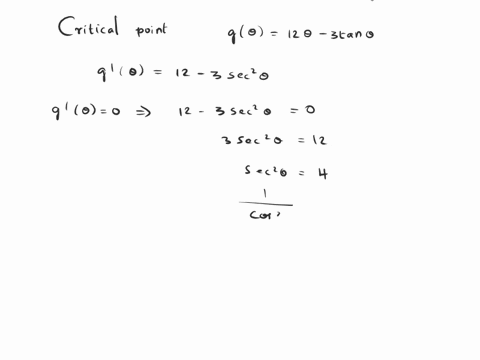 Critical point g(θ) = 12θ - 3tanθ
g'(θ) = 12 - 3 sec²θ
g'(θ) = 0 ⇒ 12 - 3 sec²θ = 0
3 sec²θ = 12
sec²θ = 4
1
cos²